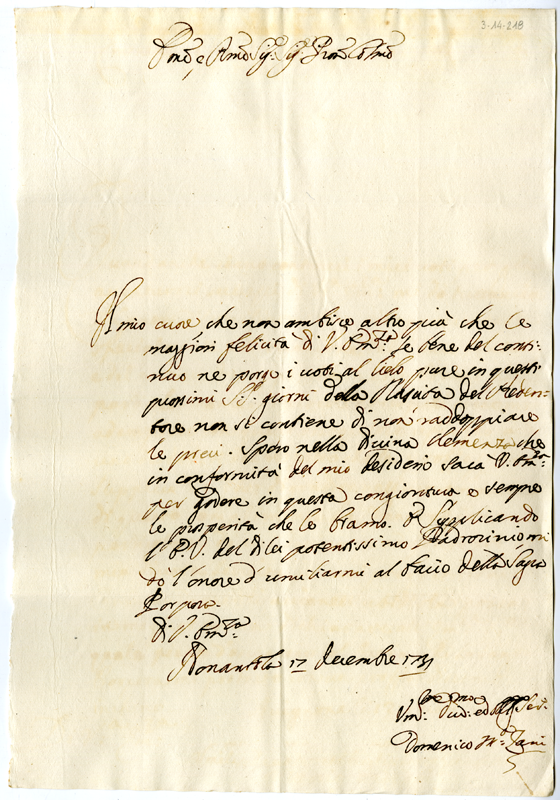 3-14-218
Emo e Rmo Sig.r Sig.r Pron Colmo
Il mio cuore che non ambisce altro più che le
maggiori felicità di V. Emza se bene del conti-
nuo ne porge i voti al Cielo pure in questi
prossimi SS. giorni della Nascita del Reden-
tore non si contiene di non raddoppiare
le preci. Spero nella divina clemenza che
in conformità del mio desiderio sarà V. Emza
per godere in questa congiontura e sempre
le prosperità che le bramo. E supplicando
l' E. V. del di lei potentissimo Padrocinio mi
dò l'onore d'umiliarmi al bacio della Sagra
Porpora.
Di V. Emza
Nonantola 17 decembre 1731
Vmo: ed Ser:
Domenico Ma Zani